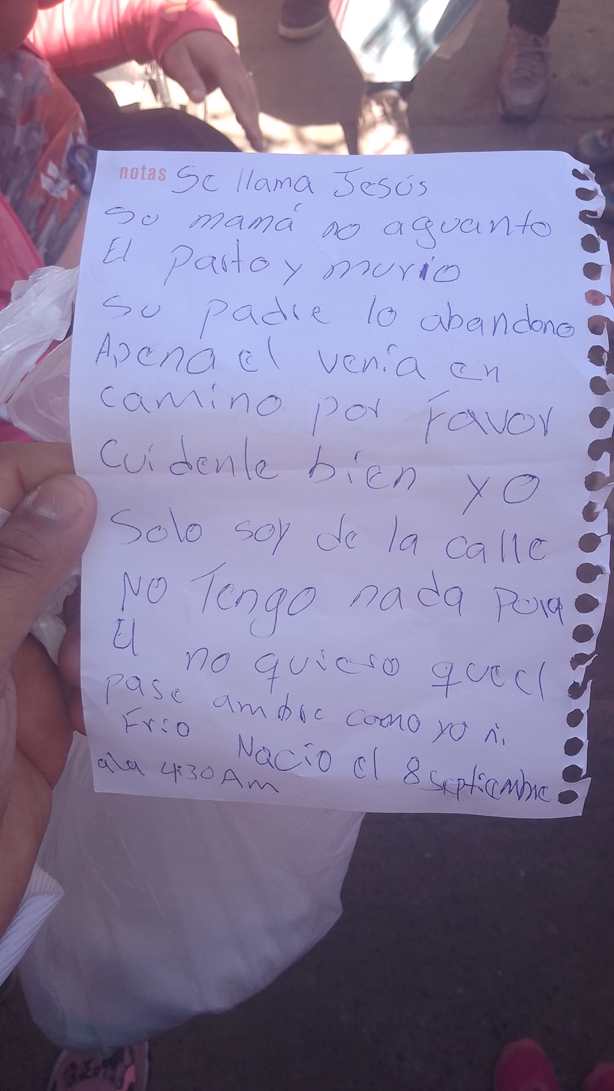 notas Se llama Jesús
su mamá no aguanto
El parto y murio
su padre lo abandono
Apena el venía en
camino por Favor
Cuidenle bien yo
Solo soy de la calle
NO Tengo nada para
El no quiero que el
pase ambre como yo ni
Frio Nacio el 8 septiembre
ala 4:30 Am